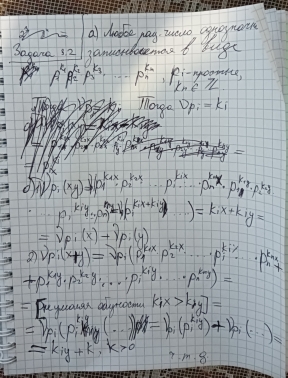 а) Любое рац. число однозначно
Задача 3.2 записывается в виде
p₁^{k₁} p₂^{k₂} p₃^{k₃} ... pₙ^{kₙ}, pᵢ - простые,
kₙ ∈ ℤ
Тогда νpᵢ = kᵢ
б) 1) νpᵢ(xy) = νpᵢ(p₁^{k₁x} · p₂^{k₂x} ... pᵢ^{kᵢx} ... pₙ^{kₙx} · p₁^{k₁y} · p₂^{k₂y}
... pᵢ^{kᵢy} ... pₙ^{kₙy}) = νpᵢ(pᵢ^{kᵢx + kᵢy} ...) = kᵢx + kᵢy =
= νpᵢ(x) + νpᵢ(y)
2) νpᵢ(x+y) = νpᵢ(p₁^{k₁x} p₂^{k₂x} ... pᵢ^{kᵢx} ... pₙ^{kₙx} +
+ p₁^{k₁y} · p₂^{k₂y} ... pᵢ^{kᵢy} ... pₙ^{kₙy}) =
= [не умаляя общности kᵢx > kᵢy] =
= νpᵢ(pᵢ^{kᵢy} (...)) = νpᵢ(pᵢ^{kᵢy}) + νpᵢ(...) =
= kᵢy + k, k > 0
ч.т.д